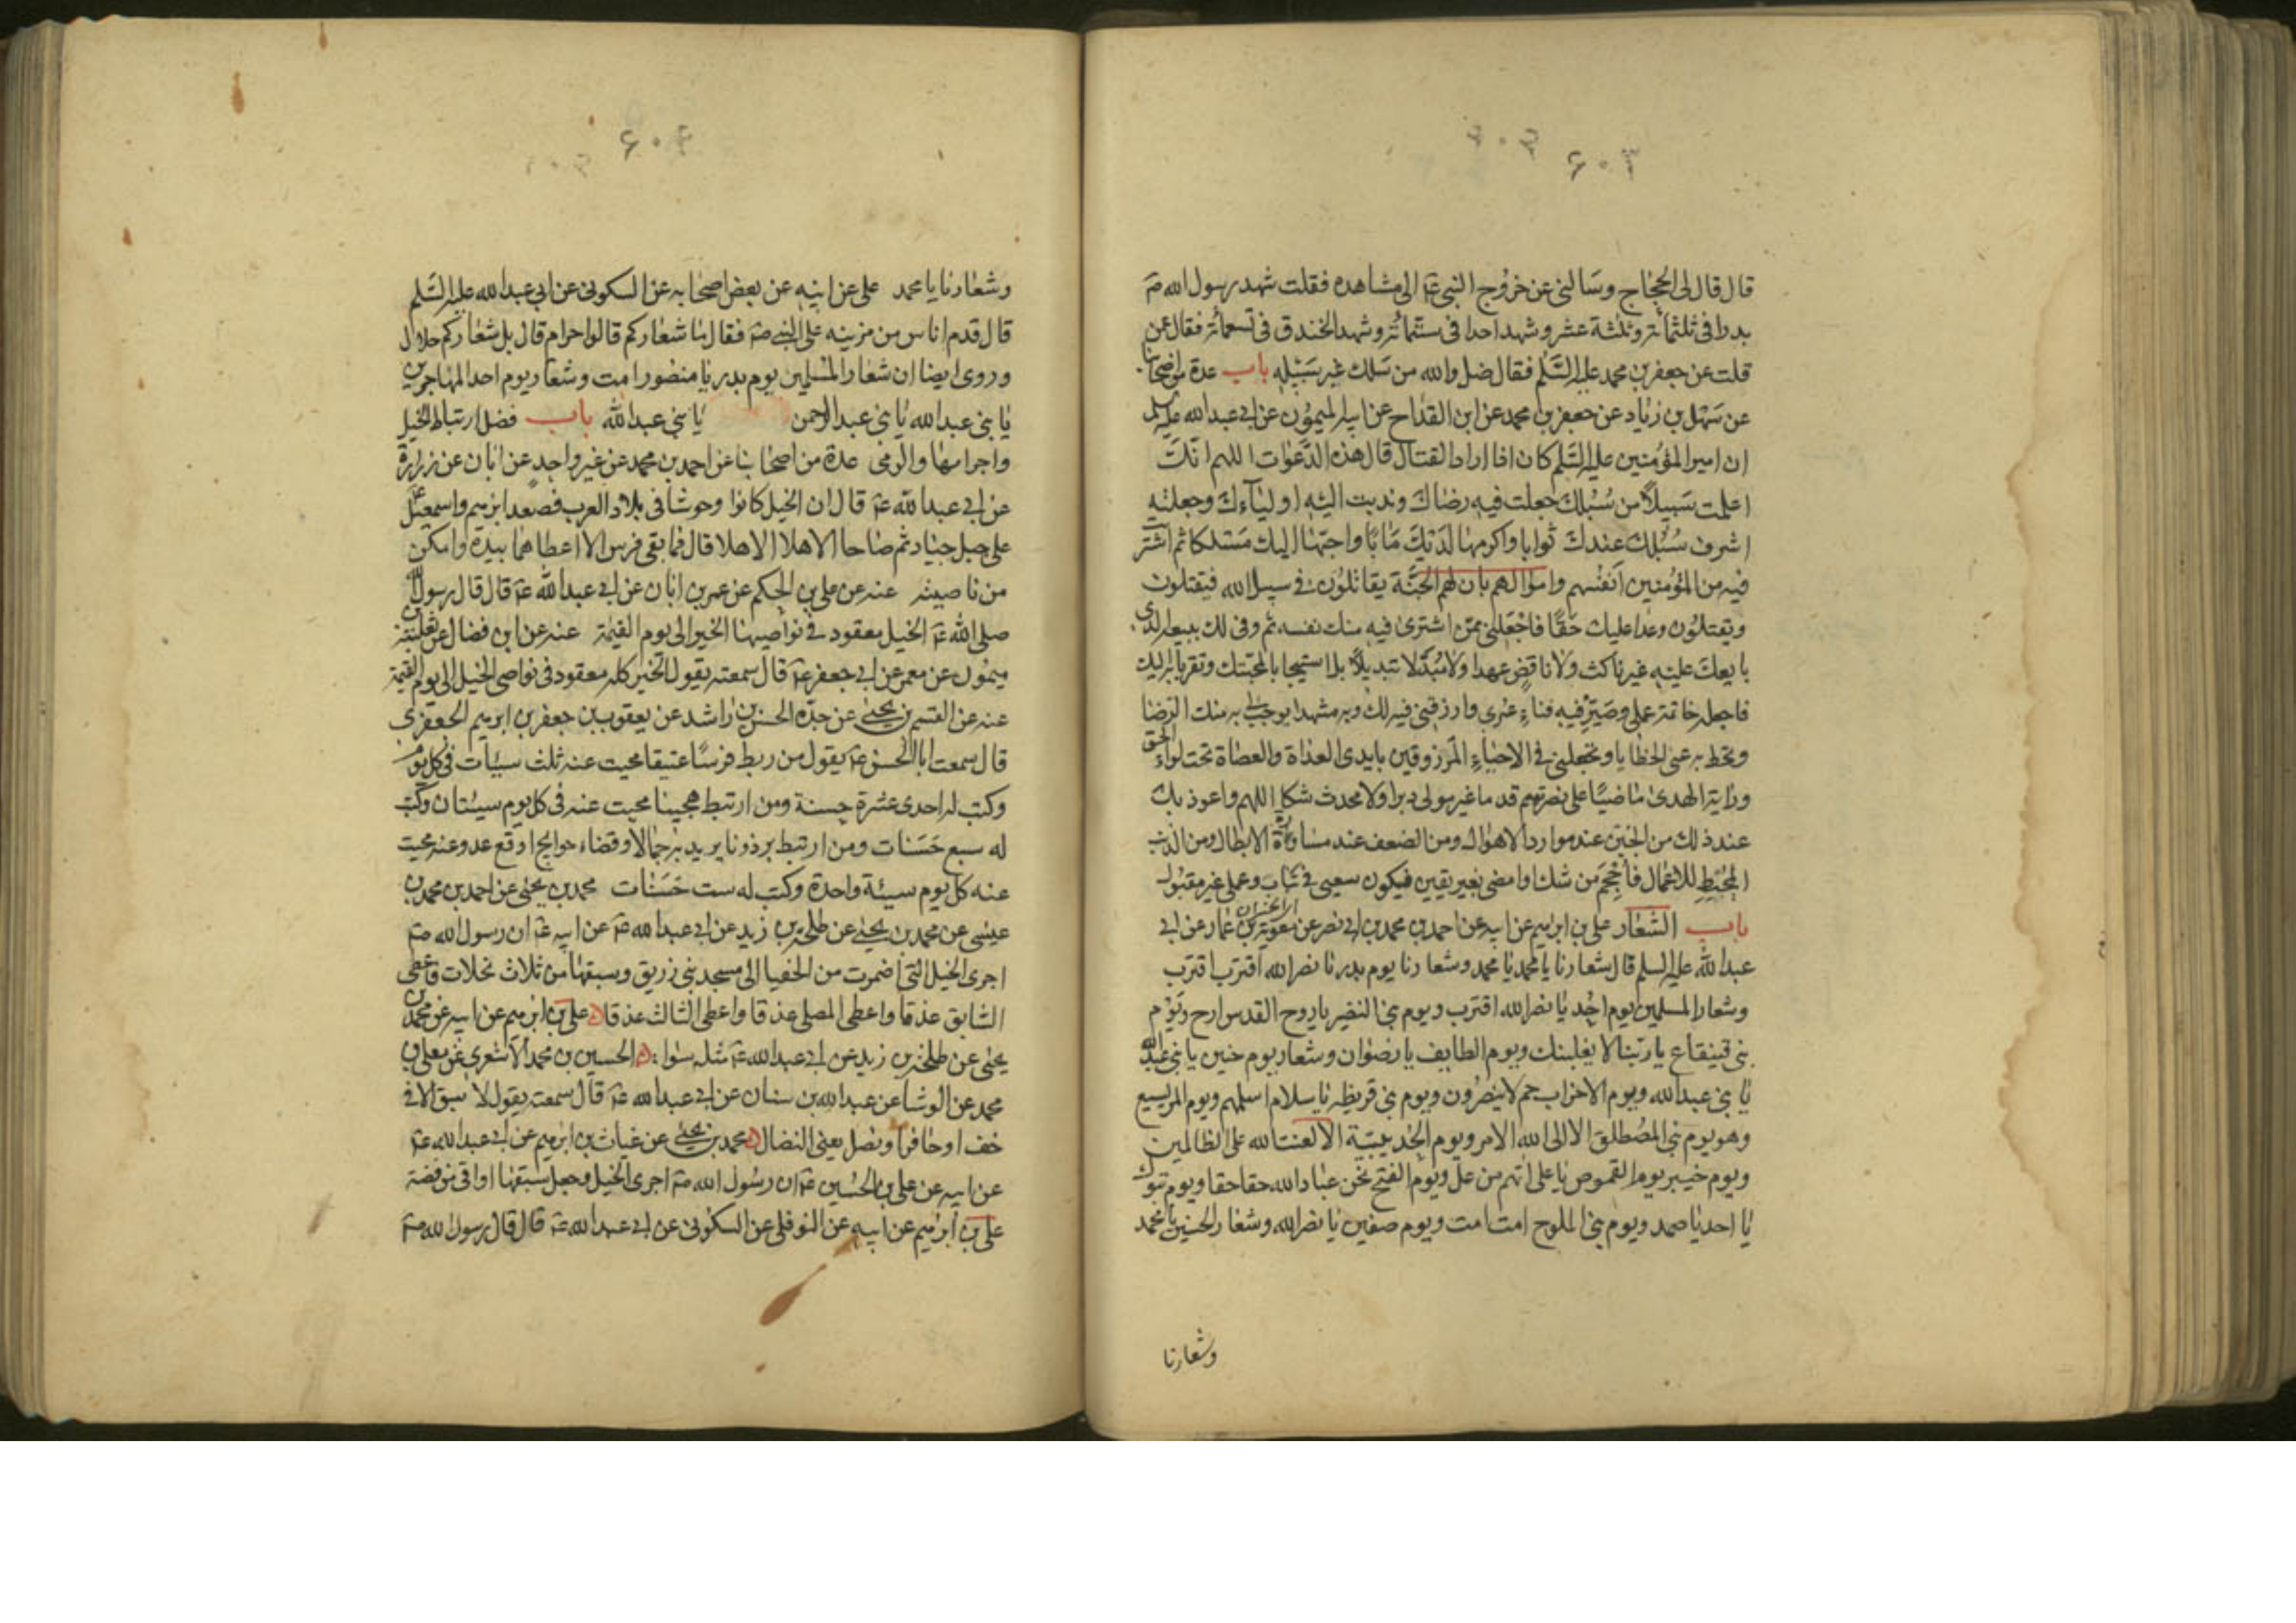 ۶۰۳
قال قال لى الحجاج وسالنى عن خروج النبى ع الى مشاهده فقلت شهد رسول الله ص
بدرا فى ثلثمائة وثلثة عشر وشهد احدا فى ستمائة وشهد الخندق فى تسعمائة فقال عن
قلت عن جعفر بن محمد عليه السلم فقال ضل والله من سلك غير سبيله باب عدة من اصحابنا
عن سهل بن زياد عن جعفر بن محمد عن ابن القداح عن ابيه الميمون عن ابى عبد الله عليه السلم
ان امير المؤمنين عليه السلم كان اذا اراد القتال قال هذه الدعوات اللهم انك
اعلمت سبيلا من سبلك جعلت فيه رضاك وندبت اليه اوليآءك وجعلته
اشرف سبلك عندك ثوابا واكرمها لديك مابا واحبها اليك مسلكا ثم اشتريت
فيه من المؤمنين انفسهم واموالهم بان لهم الجنة يقاتلون فى سبيل الله فيقتلون
ويقتلون وعدا عليك حقا فاجعلنى ممن اشترى فيه منك نفسه ثم وفى لك ببيعه الذى
بايعك عليه غير ناكث ولا ناقض عهدا ولا مبدلا تبديلا بل استيجابا لمحبتك وتقربا به اليك
فاجعله خاتمة عملى وصير فيه فناء عمرى وارزقنى فيه لك وبه مشهدا توجب لى به منك الرضا
وتحط به عنى الخطايا وتجعلنى فى الاحياء المرزوقين بايدى العداة والعصاة تحت لواء الحق
وراية الهدى ماضيا على نصرتهم قدما غير مولى دبرا ولا محدث شكا اللهم واعوذ بك
عند ذلك من الجبن عند موارد الاهوال ومن الضعف عند مساورة الابطال ومن الذنب
المحبط للاعمال فاحجم من شك او امضى بغير يقين فيكون سعيى فى تباب وعملى غير مقبول
باب الشعار على بن ابرهيم عن ابيه عن احمد بن محمد بن ابى نصر عن معوية بن عمار عن ابى
عبد الله عليه السلم قال شعارنا يا محمد يا محمد وشعارنا يوم بدر يا نصر الله اقترب اقترب
وشعار المسلمين يوم احد يا نصر الله اقترب ويوم بنى النضير يا روح القدس ارح ويوم
بنى قينقاع يا ربنا لا يغلبنك ويوم الطايف يا رضوان وشعار يوم حنين يا بنى عبد الله
يا بنى عبد الله ويوم الاحزاب حم لا ينصرون ويوم بنى قريظه يا سلام اسلمهم ويوم المريسيع
وهو يوم بنى المصطلق الا الى الله الامر ويوم الحديبية الا لعنت الله على الظالمين
ويوم خيبر يوم القموص يا على اتهم من عل ويوم الفتح نحن عباد الله حقا حقا ويوم تبوك
يا احد يا صمد ويوم بنى الملوح امت امت ويوم صفين يا نصر الله وشعار الحسين يا محمد
وشعارنا
۶۰۴
وشعارنا يا محمد على عن ابيه عن بعض اصحابه عن السكونى عن ابى عبد الله عليه السلم
قال قدم اناس من مزينه على النبى ص فقال ما شعاركم قالوا حرام قال بل شعاركم حلال
وروى ايضا ان شعار المسلمين يوم بدر يا منصور امت وشعار يوم احد المهاجرين
يا بنى عبد الله يا بنى عبد الرحمن يا بنى عبد الله باب فضل ارتباط الخيل
واجرائها والرمى عدة من اصحابنا عن احمد بن محمد عن غير واحد عن ابان عن زرارة
عن ابى عبد الله ع قال ان الخيل كانوا وحوشا فى بلاد العرب فصعد ابرهيم واسمعيل
على جبل جياد ثم صاحا الا هلا الا هلا قال فما بقى فرس الا اعطاهما بيده وامكن
من ناصيته عنه عن على بن الحكم عن عمر بن ابان عن ابى عبد الله ع قال قال رسول الله
صلى الله ع الخيل معقود فى نواصيها الخير الى يوم القيمة عنه عن ابن فضال عن ثعلبة بن
ميمون عن معمر عن ابى جعفر ع قال سمعته يقول الخير كله معقود فى نواصى الخيل الى يوم القيمة
عنه عن القسم بن يحيى عن جده الحسن بن راشد عن يعقوب بن جعفر بن ابرهيم الجعفرى
قال سمعت ابا الحسن ع يقول من ربط فرسا عتيقا محيت عنه ثلث سيئات فى كل يوم
وكتب له احدى عشرة حسنة ومن ارتبط هجينا محيت عنه فى كل يوم سيئتان وكتب
له سبع حسنات ومن ارتبط برذونا يريد به جمالا وقضاء حوايج او دفع عدو عنه محيت
عنه كل يوم سيئة واحدة وكتب له ست حسنات محمد بن يحيى عن احمد بن محمد بن
عيسى عن محمد بن يحيى عن طلحة بن زيد عن ابى عبد الله ع عن ابيه ع ان رسول الله ص
اجرى الخيل التى اضمرت من الحفيا الى مسجد بنى زريق وسبقها من ثلاث نخلات فاعطى
السابق عذقا واعطى المصلى عذقا واعطى الثالث عذقا على بن ابرهيم عن ابيه عن محمد بن
يحيى عن طلحة بن زيد عن ابى عبد الله ع مثله سوا الحسين بن محمد الاشعرى عن معلى بن
محمد عن الوشا عن عبد الله بن سنان عن ابى عبد الله ع قال سمعته يقول لا سبق الا فى
خف او حافر او نصل يعنى النضال محمد بن يحيى عن غياث بن ابرهيم عن ابى عبد الله ع
عن ابيه عن على بن الحسين ع ان رسول الله ص اجرى الخيل وجعل سبقها اواقى من فضة
على بن ابرهيم عن ابيه عن النوفلى عن السكونى عن ابى عبد الله ع قال قال رسول الله ص